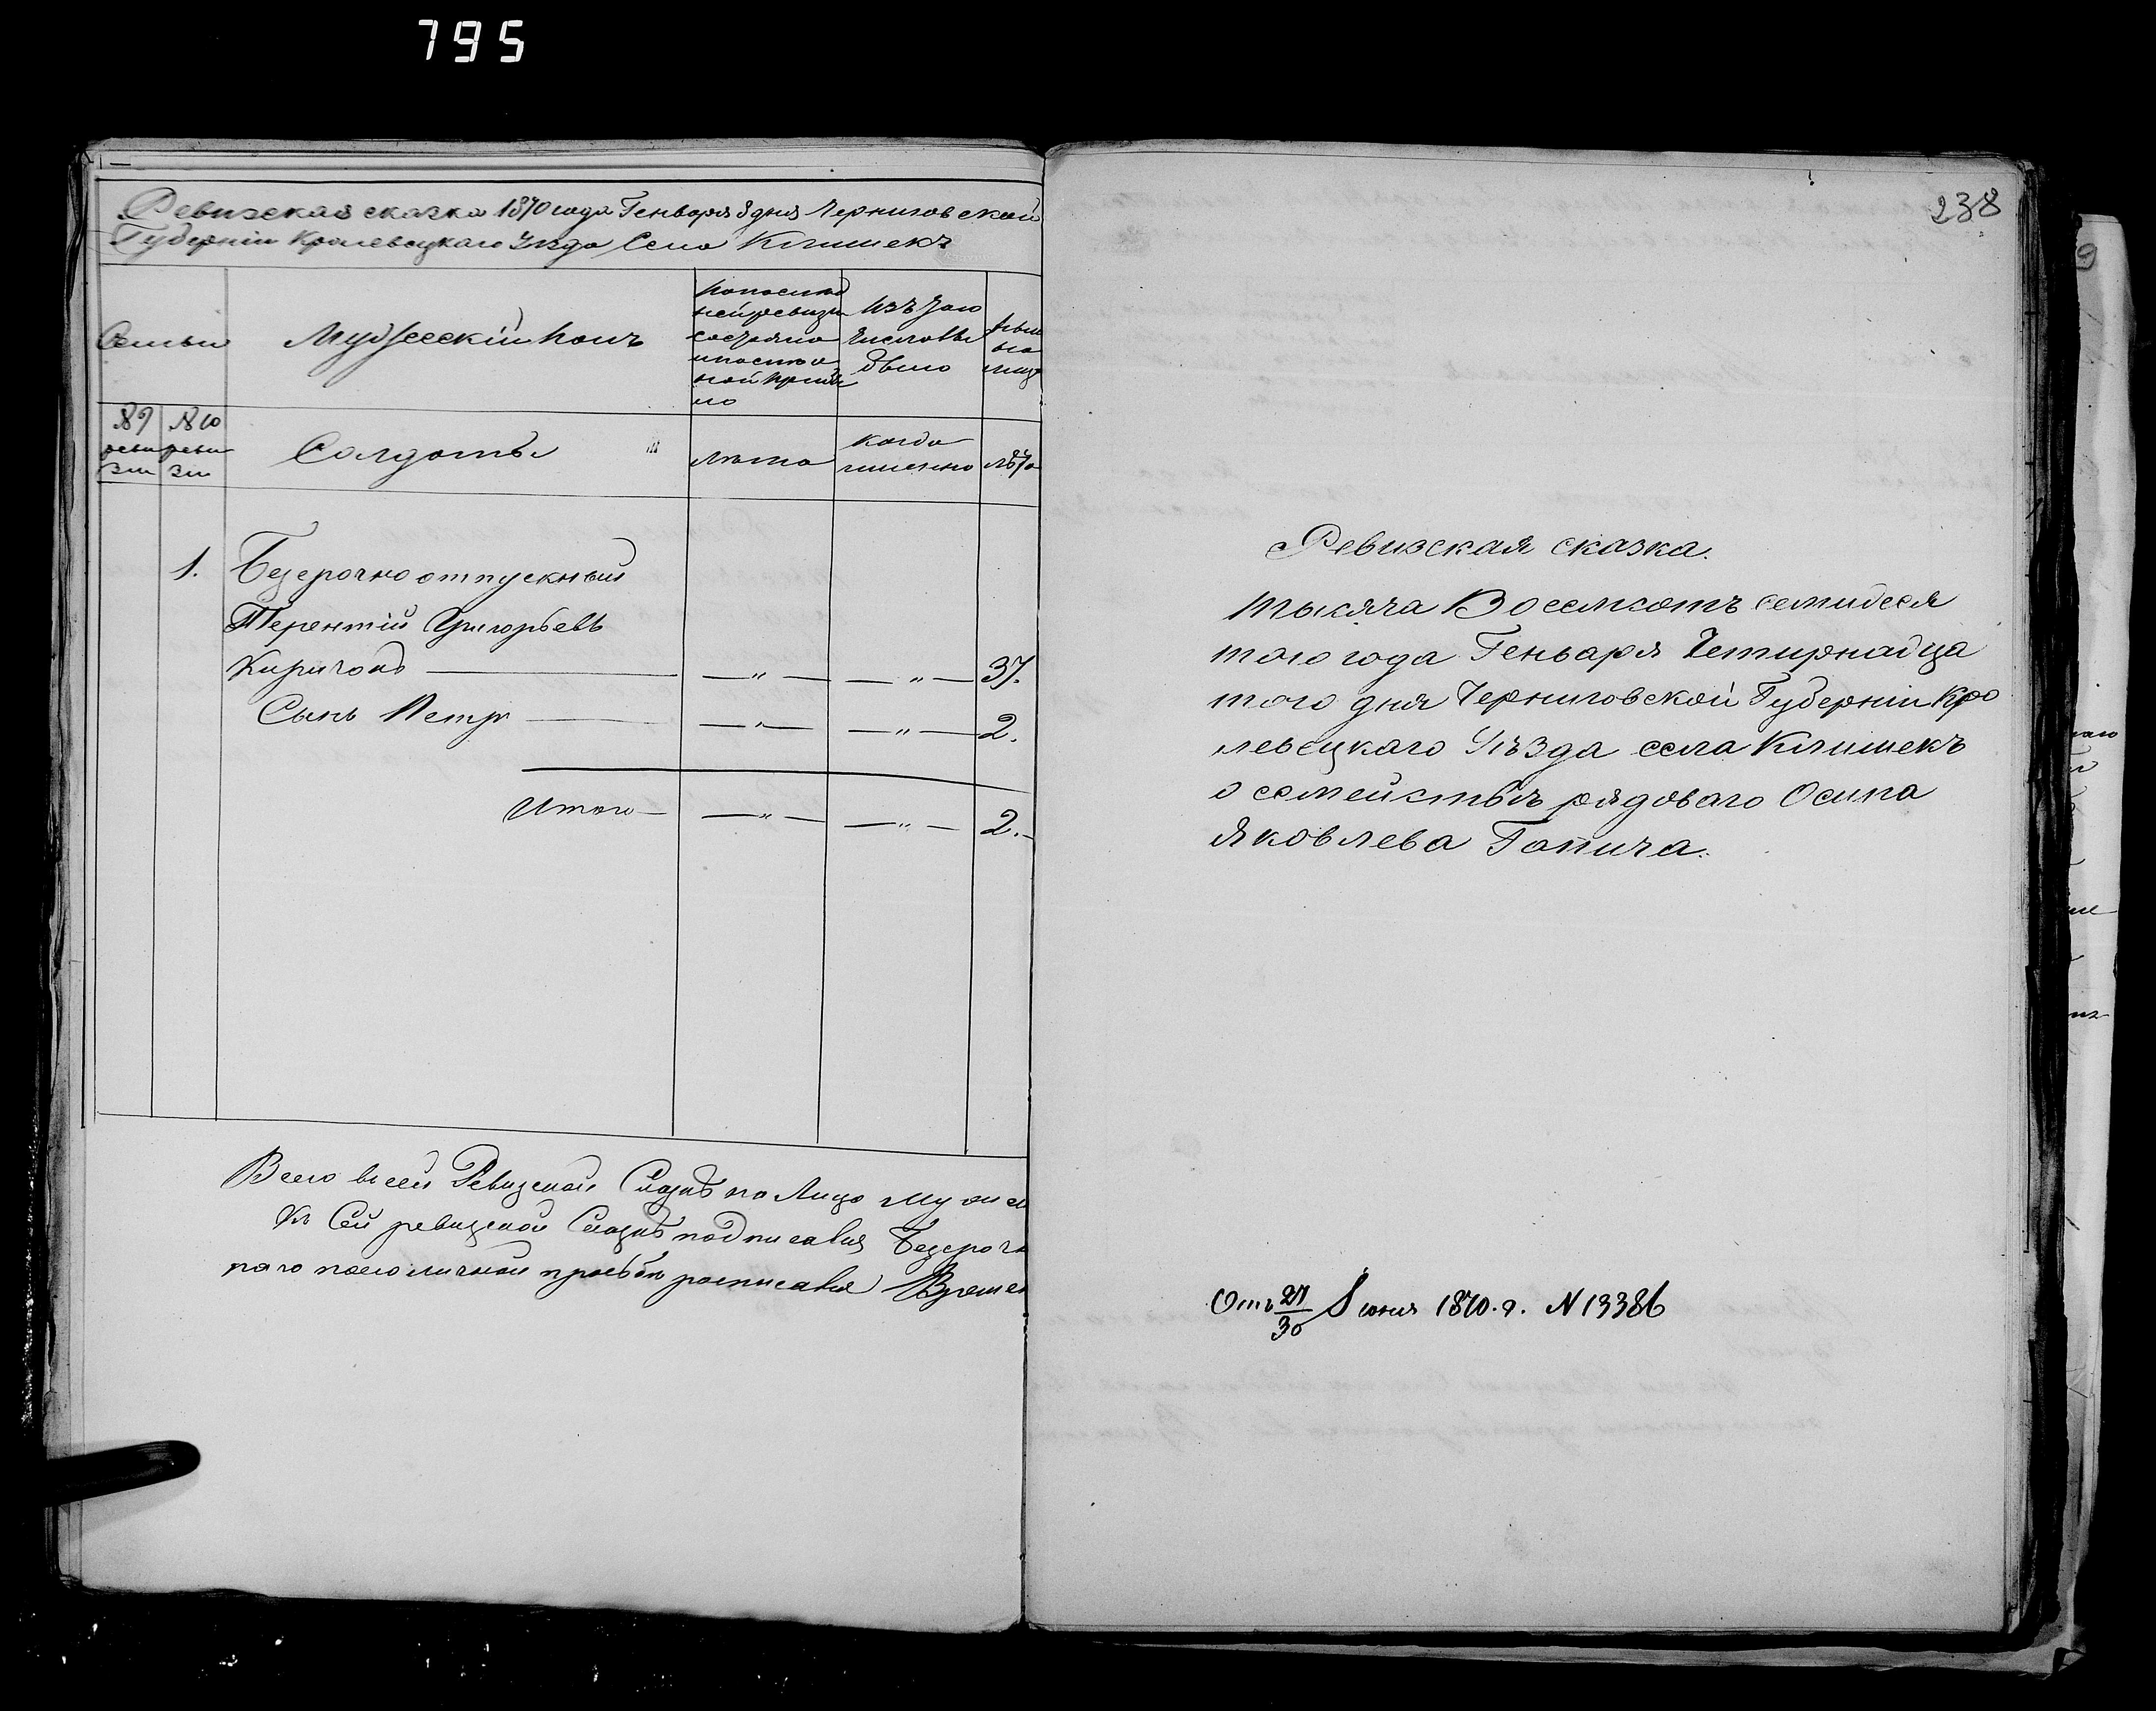 795
Ревизская сказка 1870 года Генваря 8 дня Черниговской
Губерніи Кролевецкаго Уезда Села Клишекъ
Семьи
Мужескій полъ
По послед
ней ревизи
состояло
и после
ной прибы
ло
Изъ того
числа вы
было
Ныне
на
лицо
№ 9 реви зіи
№ 10 реви зіи
Солдаты
лета
когда именно
лета
1. Безсрочно отпускный
Терентій Григорьевъ
Киричокъ — „ — — „ — 37.
Сынъ Петръ — „ — — „ — 2.
Итого — — „ — — „ — 2. –
Всего въ сей Ревизской Сказкѣ на Лицо Мужеск
Къ Сей ревизской Сказкѣ подписался Безсрочн
раго по его личной прозьбѣ росписался Времен
238
Ревизская сказка.
Тысяча Восемсотъ семидеся
того года Геньваря Четирнадца
того дня Черниговской Губерніи Кро
левецкаго Уѣзда села Клишекъ
о семействѣ рядоваго Осипа
Яковлева Гопича.
Отъ 27/30 Іюня 1870. г. N 13386